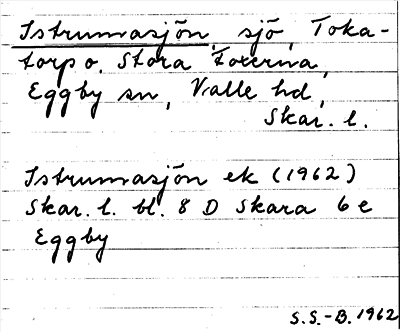 Istrumasjön, sjö, Toka-
torp o. Stora Foxerna,
Eggby sn, Valle hd,
Skar. l.
Istrumasjön ek (1962)
Skar. l. bl. 8 D Skara 6 e
Eggby
S.S.-B. 1962